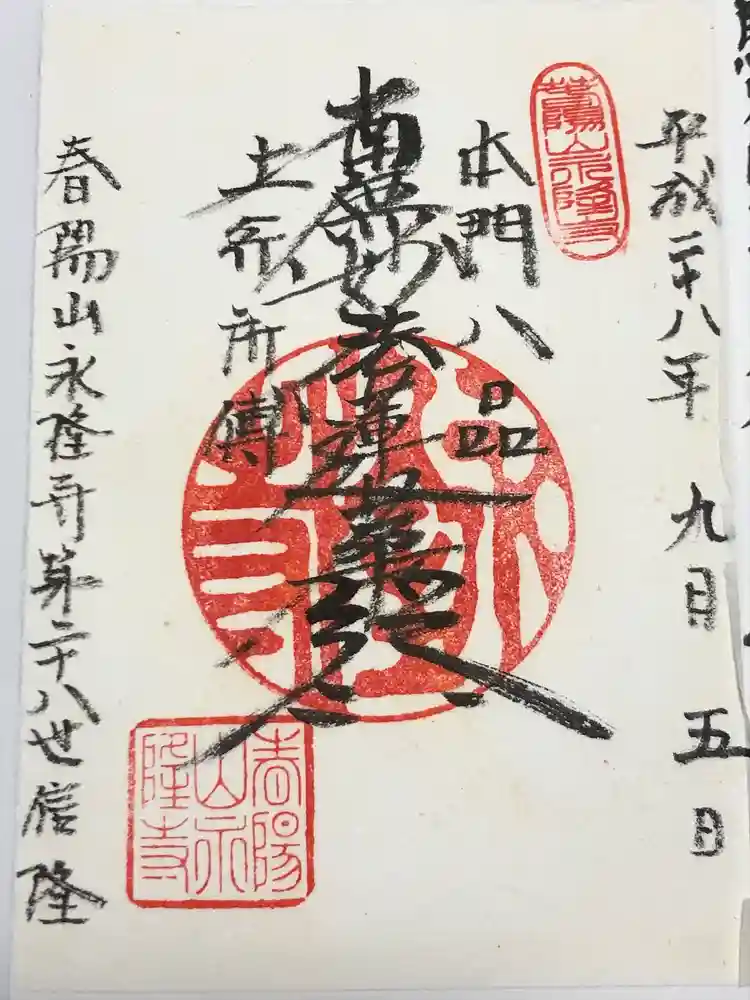 平成二十八年 九月 五日
春陽山永隆寺
本門八品
南無妙法蓮華経
上行所傳
永隆寺
春陽
山永
隆寺
春陽山永隆寺第二十八世信隆